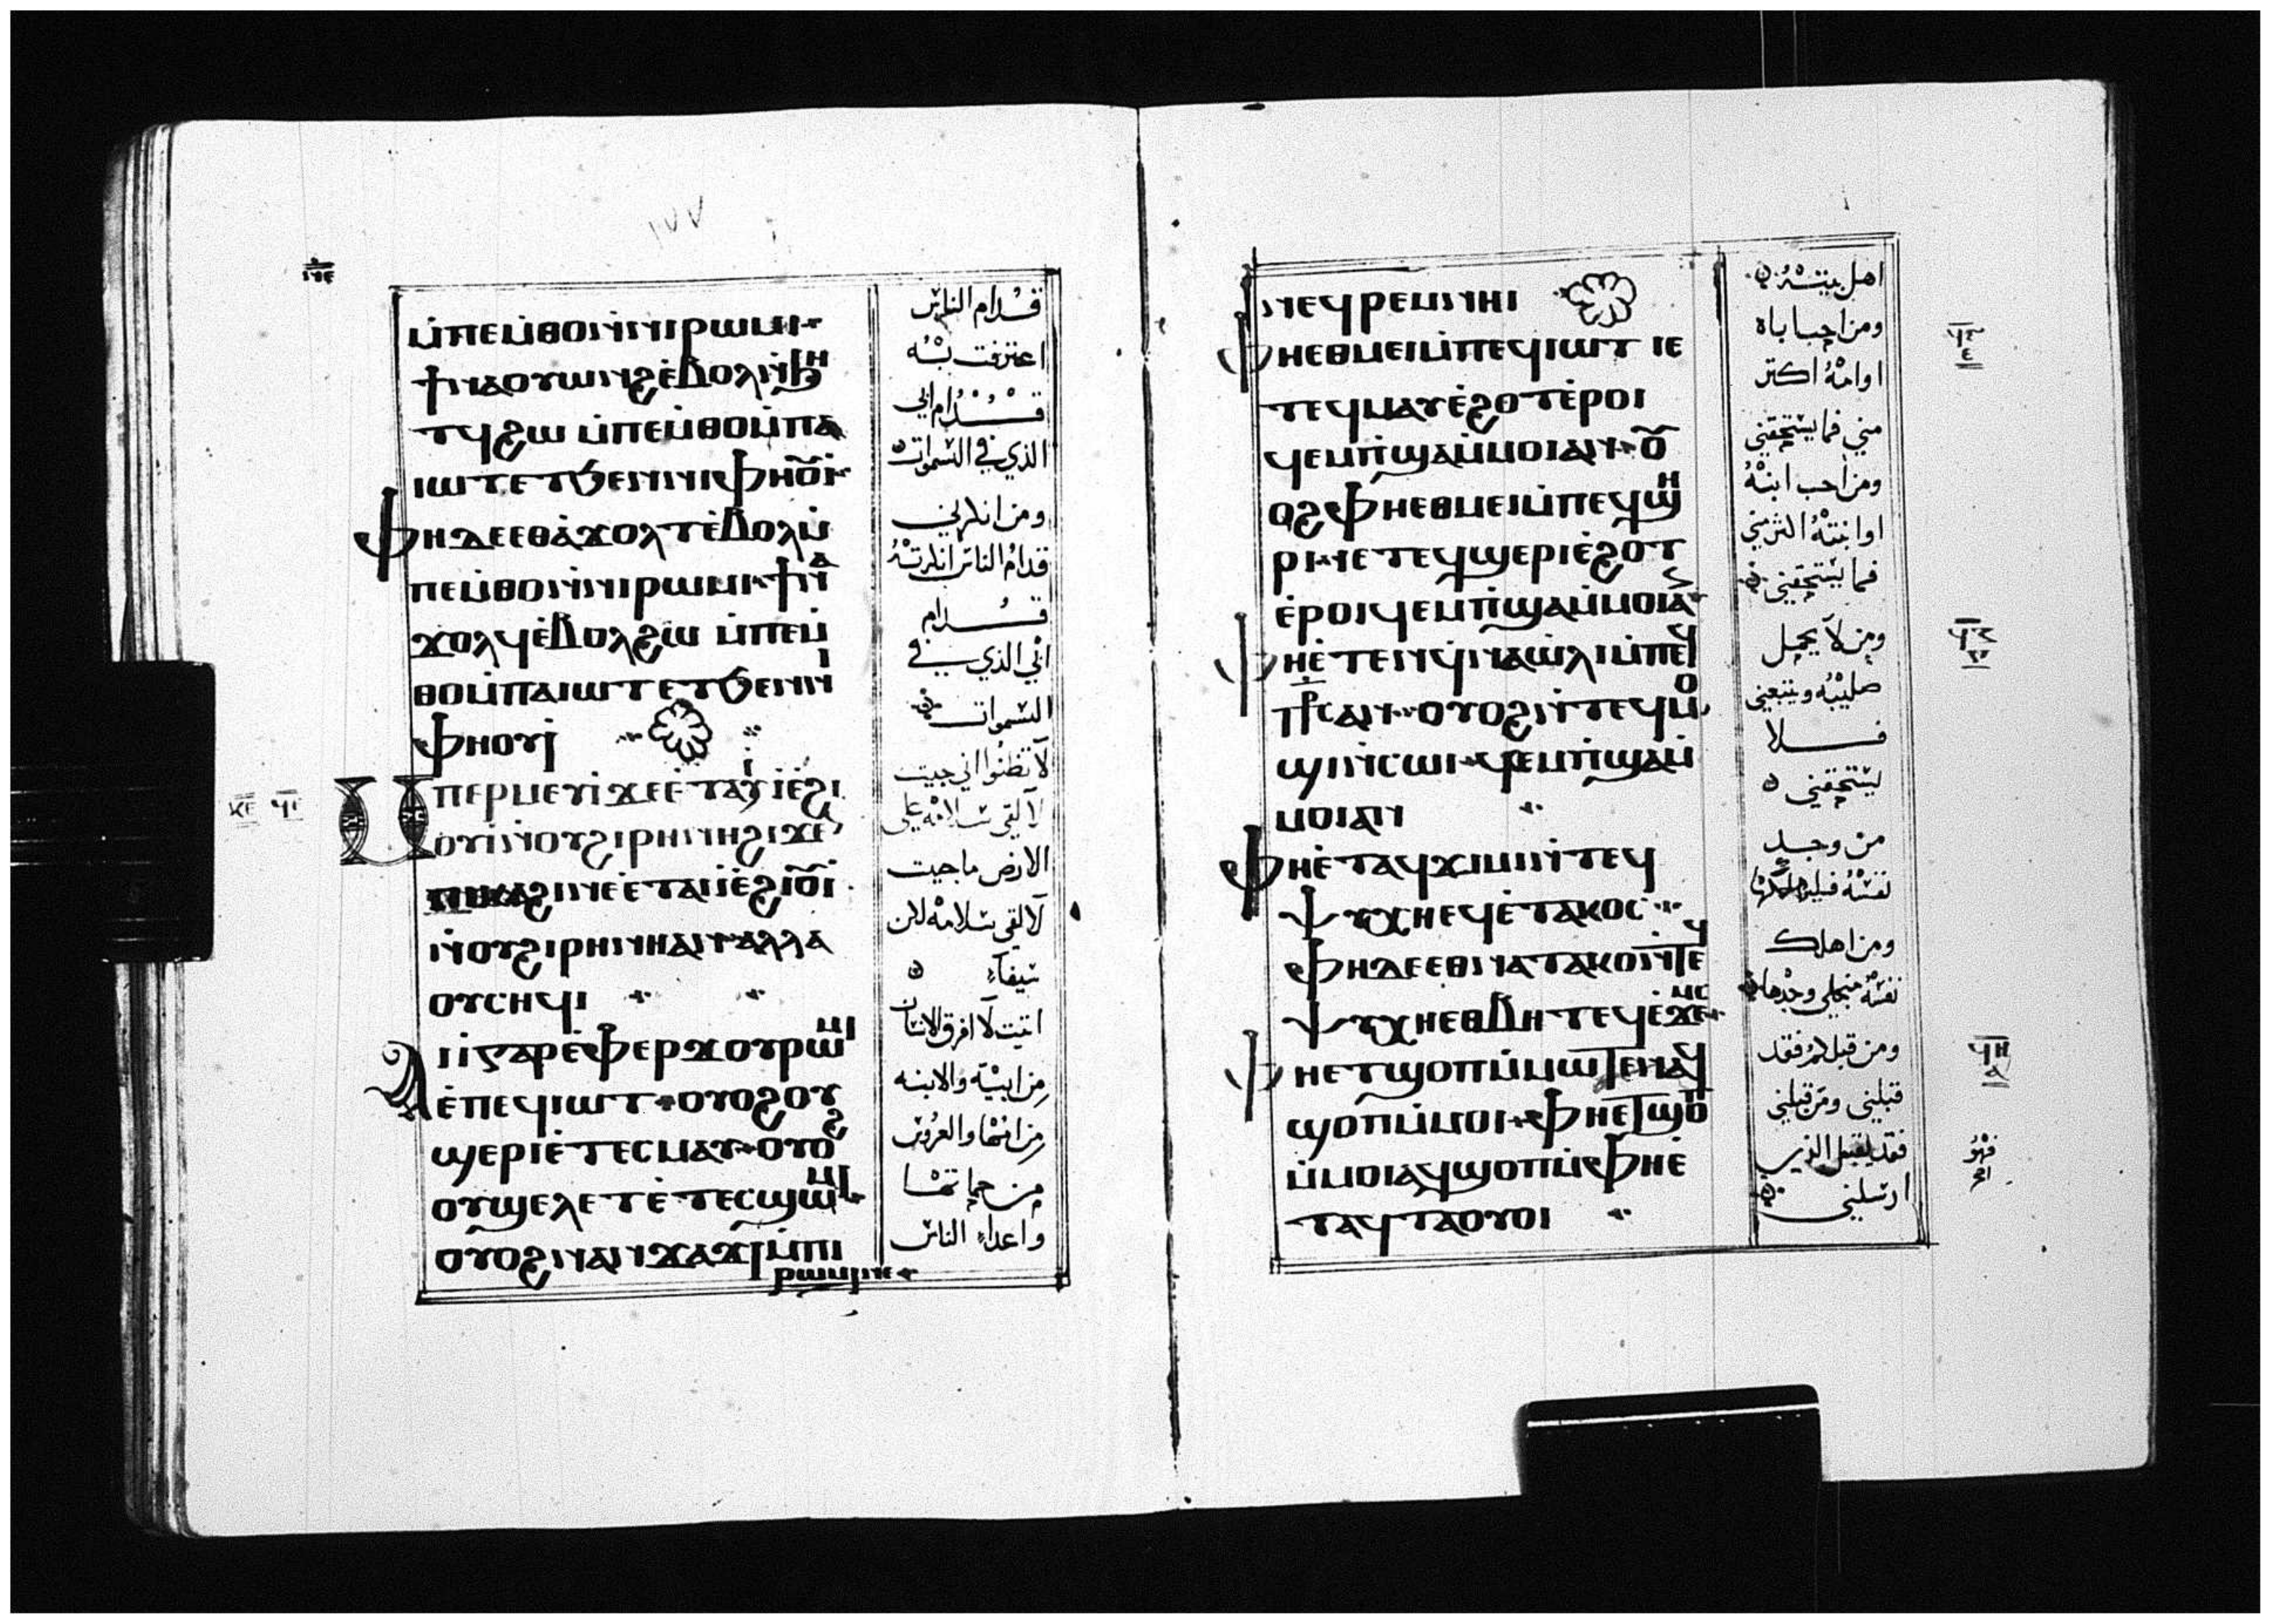 ⲓ̅ⲛ̅ⲉ̅
١٧٧
ⲙ̇ⲡⲉⲙ̇ⲑⲟⲛ̇ⲛⲓⲣⲱⲙⲓ
ϯⲛⲁⲟⲩⲱⲛϩⲉ̇ⲃⲟⲗⲛ̇ϧⲏ
ⲧϥϩⲱ ⲙ̇ⲡⲉⲙ̇ⲑⲟⲙ̇ⲡⲁ
ⲓⲱⲧⲉⲧϧⲉⲛⲛⲓⲫⲏⲟⲩⲓ̇
ⲫⲏⲇⲉⲉⲑⲁ̇ϫⲟⲗⲧⲉ̇ⲃⲟⲗⲙ̇
ⲡⲉⲙ̇ⲑⲟⲛ̇ⲛⲓⲣⲱⲙⲓ ϯⲛⲁ
ϫⲟⲗϥⲉ̇ⲃⲟⲗϩⲱ ⲙ̇ⲡⲉⲙ̇
ⲑⲟⲙ̇ⲡⲁⲓⲱⲧⲉⲧϧⲉⲛⲛⲓ
ⲫⲏⲟⲩⲓ̇
ⲙⲡⲉⲣⲙⲉⲩⲓ̇ϫⲉⲉ̇ⲧⲁⲓⲓ̇ⲉ̇ϩⲓ
ⲟⲩⲓ̇ⲛ̇ⲟⲩϩⲓⲣⲏⲛⲏϩⲓϫⲉⲛ
ⲡⲓⲕⲁϩⲓⲛⲉⲉ̇ⲧⲁⲓⲓ̇ⲉ̇ϩⲓⲟⲩⲓ̇
ⲛ̇ⲟⲩϩⲓⲣⲏⲛⲏⲁⲛ ⲁⲗⲗⲁ
ⲟⲩⲥⲏϥⲓ
ⲁⲓⲓ̇ⲅⲁⲣⲉ̇ⲫⲉⲣϫⲟⲩⲣⲱⲙⲓ
ⲉ̇ⲡⲉϥⲓⲱⲧ ⲟⲩⲟϩⲟⲩ
ϣⲉⲣⲓⲉ̇ⲧⲉⲥⲙⲁⲩ ⲟⲩⲟϩ
ⲟⲩϣⲉⲗⲉⲧⲉ̇ⲧⲉⲥϣⲱⲙⲓ
ⲟⲩⲟϩⲛⲁⲛϫⲁϫⲓⲙ̇ⲡⲓ
ⲣⲱⲙⲓⲛⲉ
قدام الناس
اعترفت به
قدام ابي
الذي في السموات
ومن انكرني
قدام الناس انكرته
قدام
ابي الذي في
السموات
لا تظنوا اني جيت
لالقي سلامه على
الارض ما جيت
لالقي سلامه لكن
سيفا
اتيت لافرق الانسان
من ابيه والابنه
من امها والعروس
من حماتها
واعداء الناس
ⲛⲉϥⲣⲉⲙⲛⲏⲓ
ⲫⲏⲉⲑⲙⲉⲓⲙ̇ⲡⲉϥⲓⲱⲧ ⲓⲉ
ⲧⲉϥⲙⲁⲩⲉ̇ϩⲟⲧⲉ̇ⲣⲟⲓ
ϥⲉⲙⲡ̇ϣⲁⲙ̇ⲙⲟⲓⲁⲛ ⲟⲩ
ⲟϩⲫⲏⲉⲑⲙⲉⲓⲙ̇ⲡⲉϥϣⲏ
ⲣⲓ ⲓⲉⲧⲉϥϣⲉⲣⲓⲉ̇ϩⲟⲧ
ⲉ̇ⲣⲟⲓϥⲉⲙⲡ̇ϣⲁⲙ̇ⲙⲟⲓⲁⲛ
ⲫⲏⲉ̇ⲧⲉⲛϥ̇ⲛⲁⲱ̇ⲗⲓⲙ̇ⲡⲉϥ
ⲥ̅ⲧ̅ⲣ̅ⲥⲁⲛ ⲟⲩⲟϩⲛ̇ⲧⲉϥⲙⲟ
ϣⲓⲛ̇ⲥⲱⲓ ϥⲉⲙⲡ̇ϣⲁⲙ̇
ⲙⲟⲓⲁⲛ
ⲫⲏⲉ̇ⲧⲁϥϫⲓⲙⲓⲛ̇ⲧⲉϥ
ⲯⲩⲭⲏⲉϥⲉ̇ⲧⲁⲕⲟⲥ
ⲫⲏⲇⲉⲉⲑⲛⲁⲧⲁⲕⲟⲛ̇ⲧⲉϥ
ⲯⲩⲭⲏⲉⲑⲃⲏⲧ ⲉϥⲉ̇ϫⲉⲙⲥ
ⲫⲏⲉⲧϣⲟⲡⲙ̇ⲙⲱⲧⲉⲛⲁϥ
ϣⲟⲡⲙ̇ⲙⲟⲓ ⲫⲏⲉⲧϣⲱⲡ
ⲙ̇ⲙⲟⲓⲁϥϣⲟⲡⲙ̇ⲫⲏⲉ̇
ⲧⲁϥⲧⲁⲟⲩⲟⲓ
اهل بيته
ومن احب اباه
او امه اكتر
مني فما يستحقني
ومن احب ابنه
او ابنته اكثر مني
فما يستحقني
ومن لا يحمل
صليبه ويتبعني
فلا
يستحقني
من وجد
نفسه فليهلكها
ومن اهلك
نفسه من اجلي وجدها
ومن قبلكم فقد
قبلني ومن قبلني
فقد قبل الذي
ارسلني